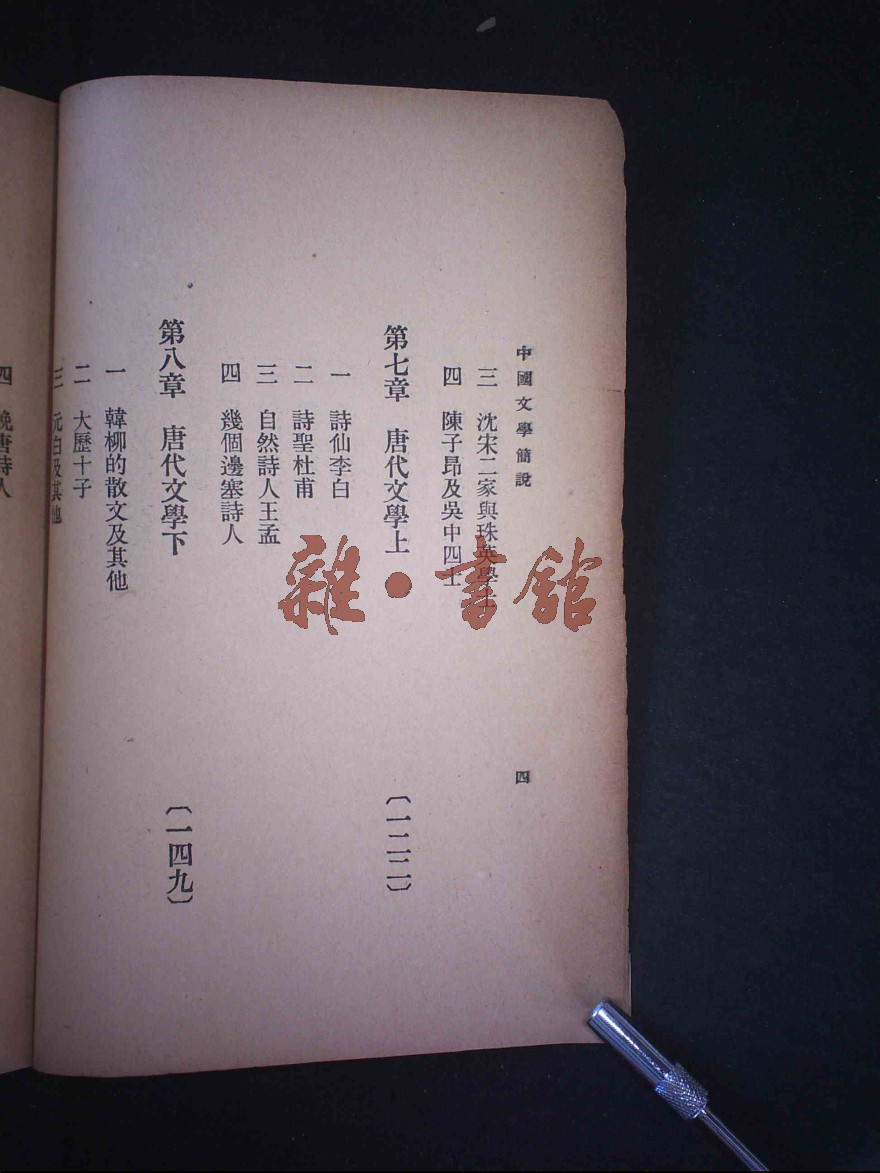 中國文學簡說
四
三 沈宋二家與珠英學士
四 陳子昂及吳中四士
第七章 唐代文學上
〔一二二〕
一 詩仙李白
二 詩聖杜甫
三 自然詩人王孟
四 幾個邊塞詩人
第八章 唐代文學下
〔一四九〕
一 韓柳的散文及其他
二 大歷十子
三 元白及其他
四 晚唐詩人
雜·書館